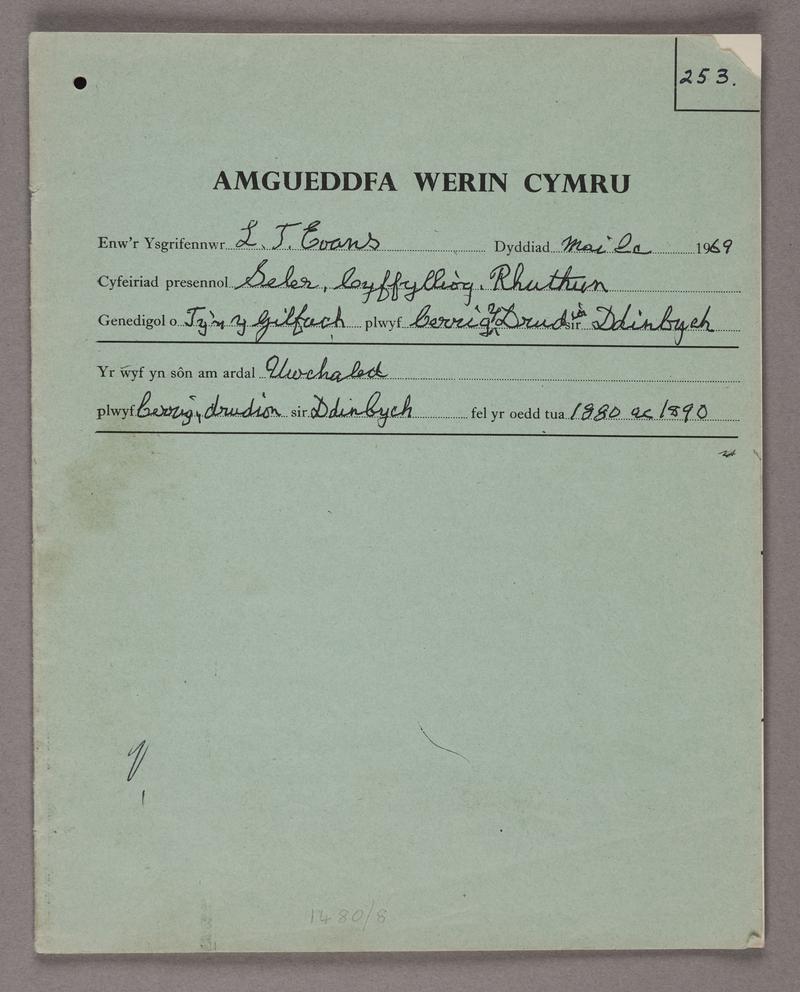 253.
AMGUEDDFA WERIN CYMRU
Enw'r Ysgrifennwr L. T. Evans Dyddiad Mai 1969
Cyfeiriad presennol Seler, Cyffylliog. Rhuthun
Genedigol o Ty'n y Gilfach plwyf Cerrig y Drudion sir Ddinbych
Yr wyf yn sôn am ardal Uwchaled
plwyf Cerrig y drudion sir Ddinbych fel yr oedd tua 1880 ac 1890
1480/8